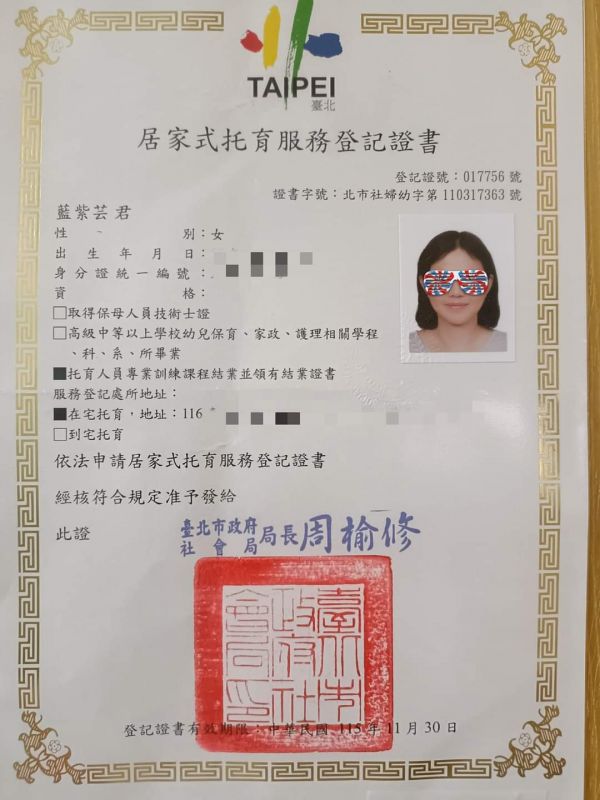 TAIPEI
臺北
居家式托育服務登記證書
登記證號：017756 號
證書字號：北市社婦幼字第 110317363 號
藍紫芸 君
性 別：女
出生年月日：
身分證統一編號：
資 格：
□取得保母人員技術士證
□高級中等以上學校幼兒保育、家政、護理相關學程
、科、系、所畢業
■托育人員專業訓練課程結業並領有結業證書
服務登記處所地址：
■在宅托育，地址：116
□到宅托育
依法申請居家式托育服務登記證書
經核符合規定准予發給
此證
臺北市政府
社會局
局長周榆修
臺北市政府社會局印
登記證書有效期限：中華民國 115 年 11 月 30 日